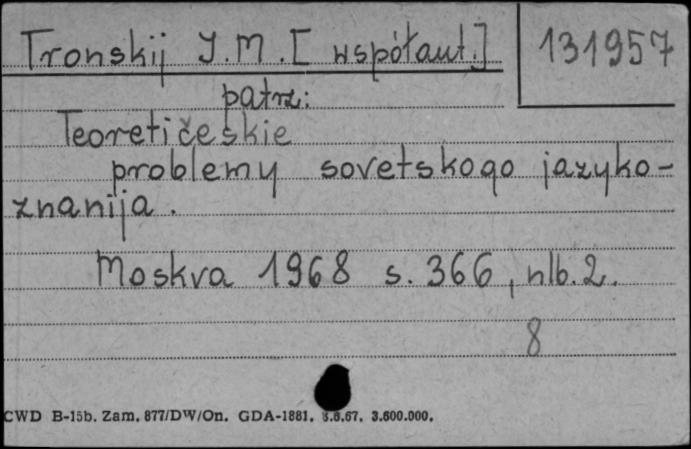 Tronskij J.M. [współaut.] 131957
patrz:
Teoretičeskie
problemy sovetskogo jazyko-
znanija.
Moskva 1968 s. 366, nlb. 2.
8
CWD B-15b. Zam. 877/DW/On. GDA-1881. 3.6.67. 3.600.000.